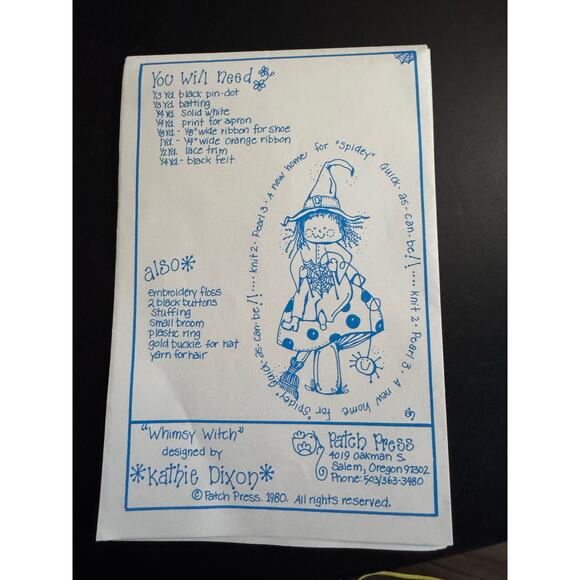 You will need
1/3 Yd. black pin-dot
1/3 Yd. batting
1/4 Yd. solid white
1/4 Yd. print for apron
1/8 Yd. - 1/8" wide ribbon for shoe
1 Yd. - 1/4" wide orange ribbon
1/2 Yd. lace trim
1/4 Yd. - black felt
also*
embroidery floss
2 black buttons
stuffing
small broom
plastic ring
gold buckle for hat
yarn for hair
Knit 2 · Pearl 3 · A new home for "Spidey" Quick-as-can-be!! .... Knit 2 · Pearl 3 · A new home for "Spidey" Quick-as-can-be!! ....
"Whimsy Witch"
designed by
*Kathie Dixon*
Patch Press
4019 Oakman S.
Salem, Oregon 97302
Phone: 503/363-3480
© Patch Press. 1980. All rights reserved.